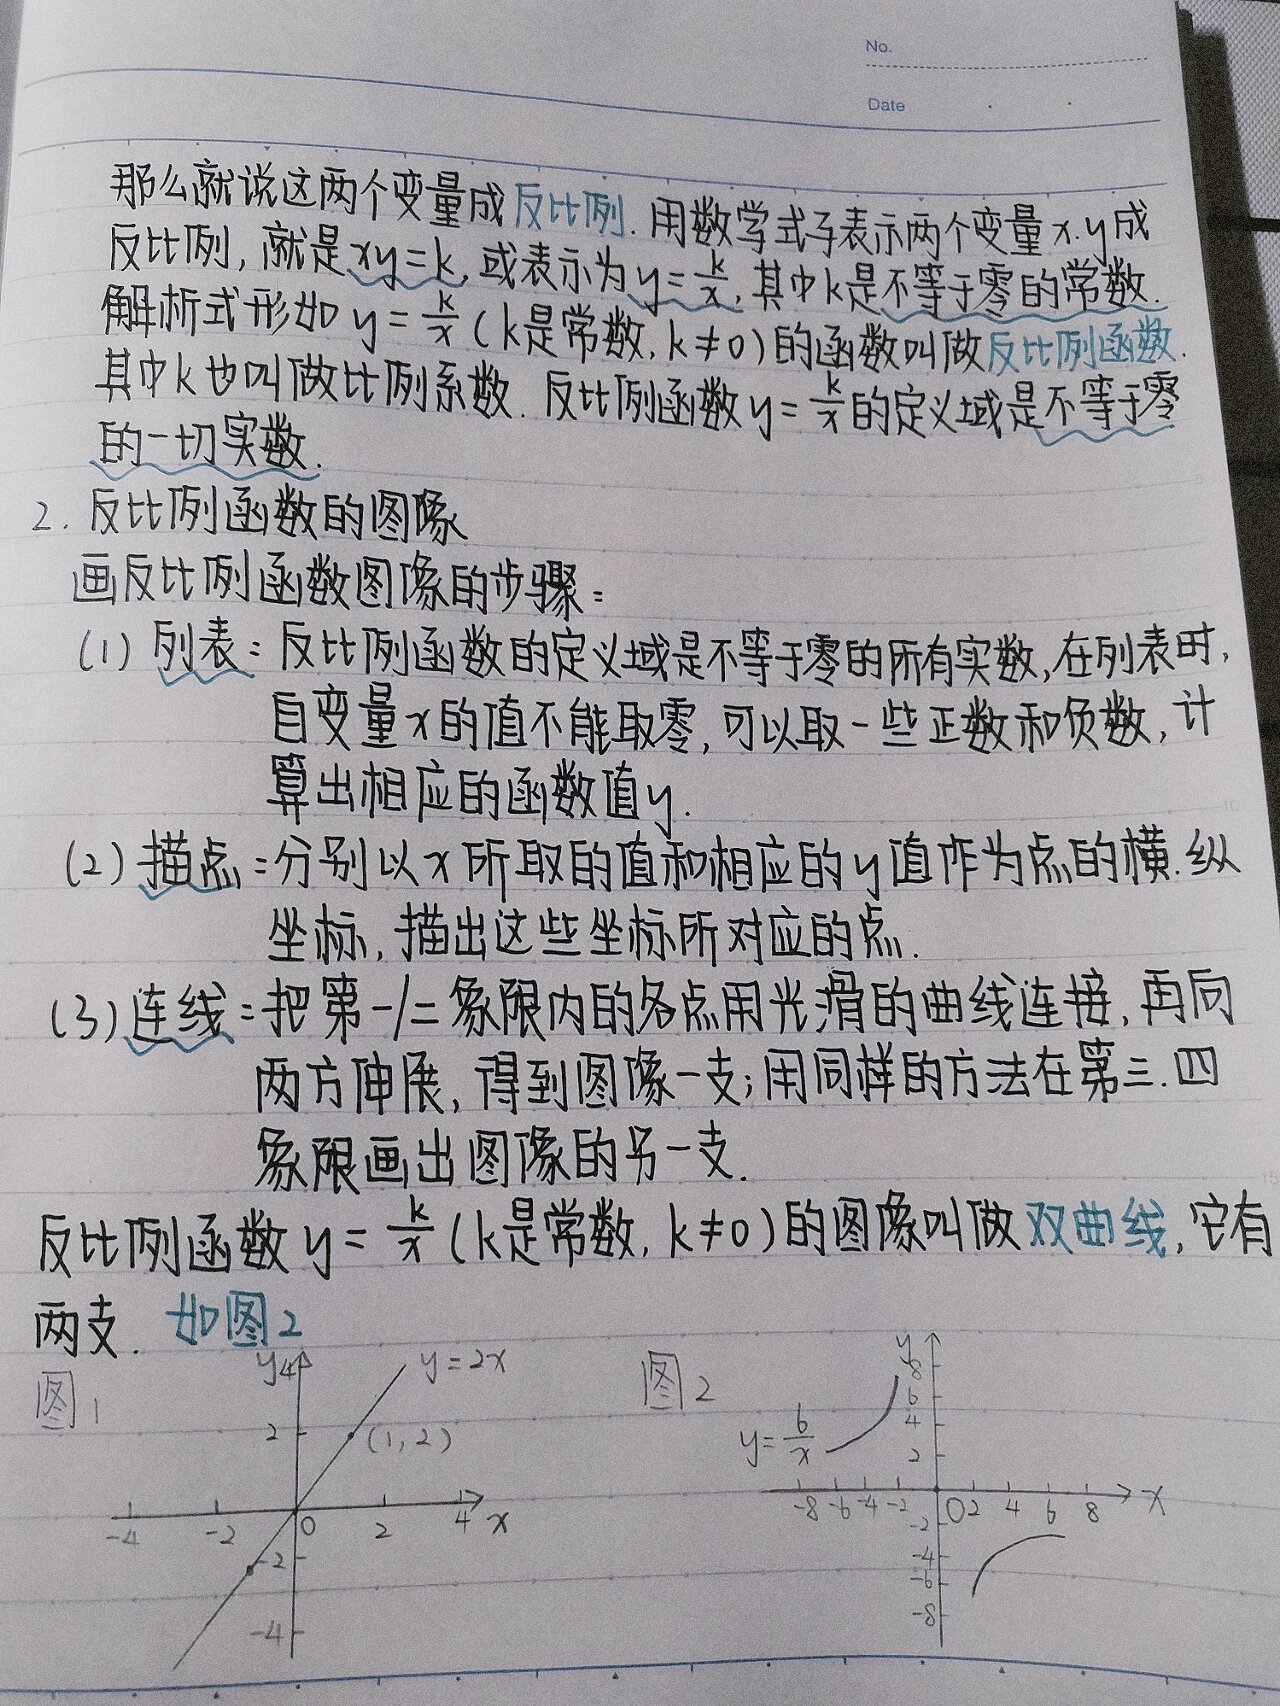 No.
Date
那么就说这两个变量成反比例.用数学式子表示两个变量x.y成
反比例,就是xy=k,或表示为y=k/x,其中k是不等于零的常数.
解析式形如y=k/x(k是常数,k≠0)的函数叫做反比例函数.
其中k也叫做比例系数.反比例函数y=k/x的定义域是不等于零
的一切实数.
2.反比例函数的图像
画反比例函数图像的步骤:
(1)列表:反比例函数的定义域是不等于零的所有实数,在列表时,
自变量x的值不能取零,可以取一些正数和负数,计
算出相应的函数值y.
(2)描点:分别以x所取的值和相应的y值作为点的横.纵
坐标,描出这些坐标所对应的点.
(3)连线:把第一/二象限内的各点用光滑的曲线连接,再向
两方伸展,得到图像一支;用同样的方法在第三.四
象限画出图像的另一支.
反比例函数y=k/x(k是常数,k≠0)的图像叫做双曲线,它有
两支.如图2
图1
y 4
y=2x
2
(1,2)
-4 -2 0 2 4 x
-2
-4
图2
y
8
6
4
2
y=6/x
-8 -6 -4 -2 0 2 4 6 8 x
-2
-4
-6
-8